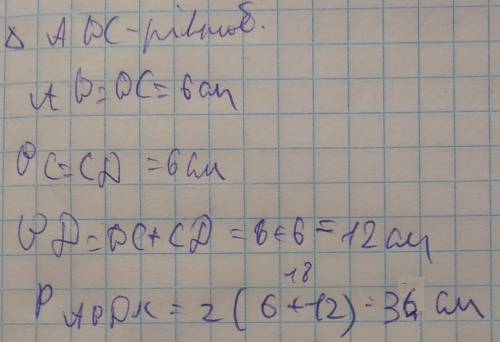 Δ ABC - рівноб.
AB = BC = 6 см
BC = CD = 6 см
BD = BC + CD = 6 + 6 = 12 см
18
P ABDK = 2 ( 6 + 12) = 36 см